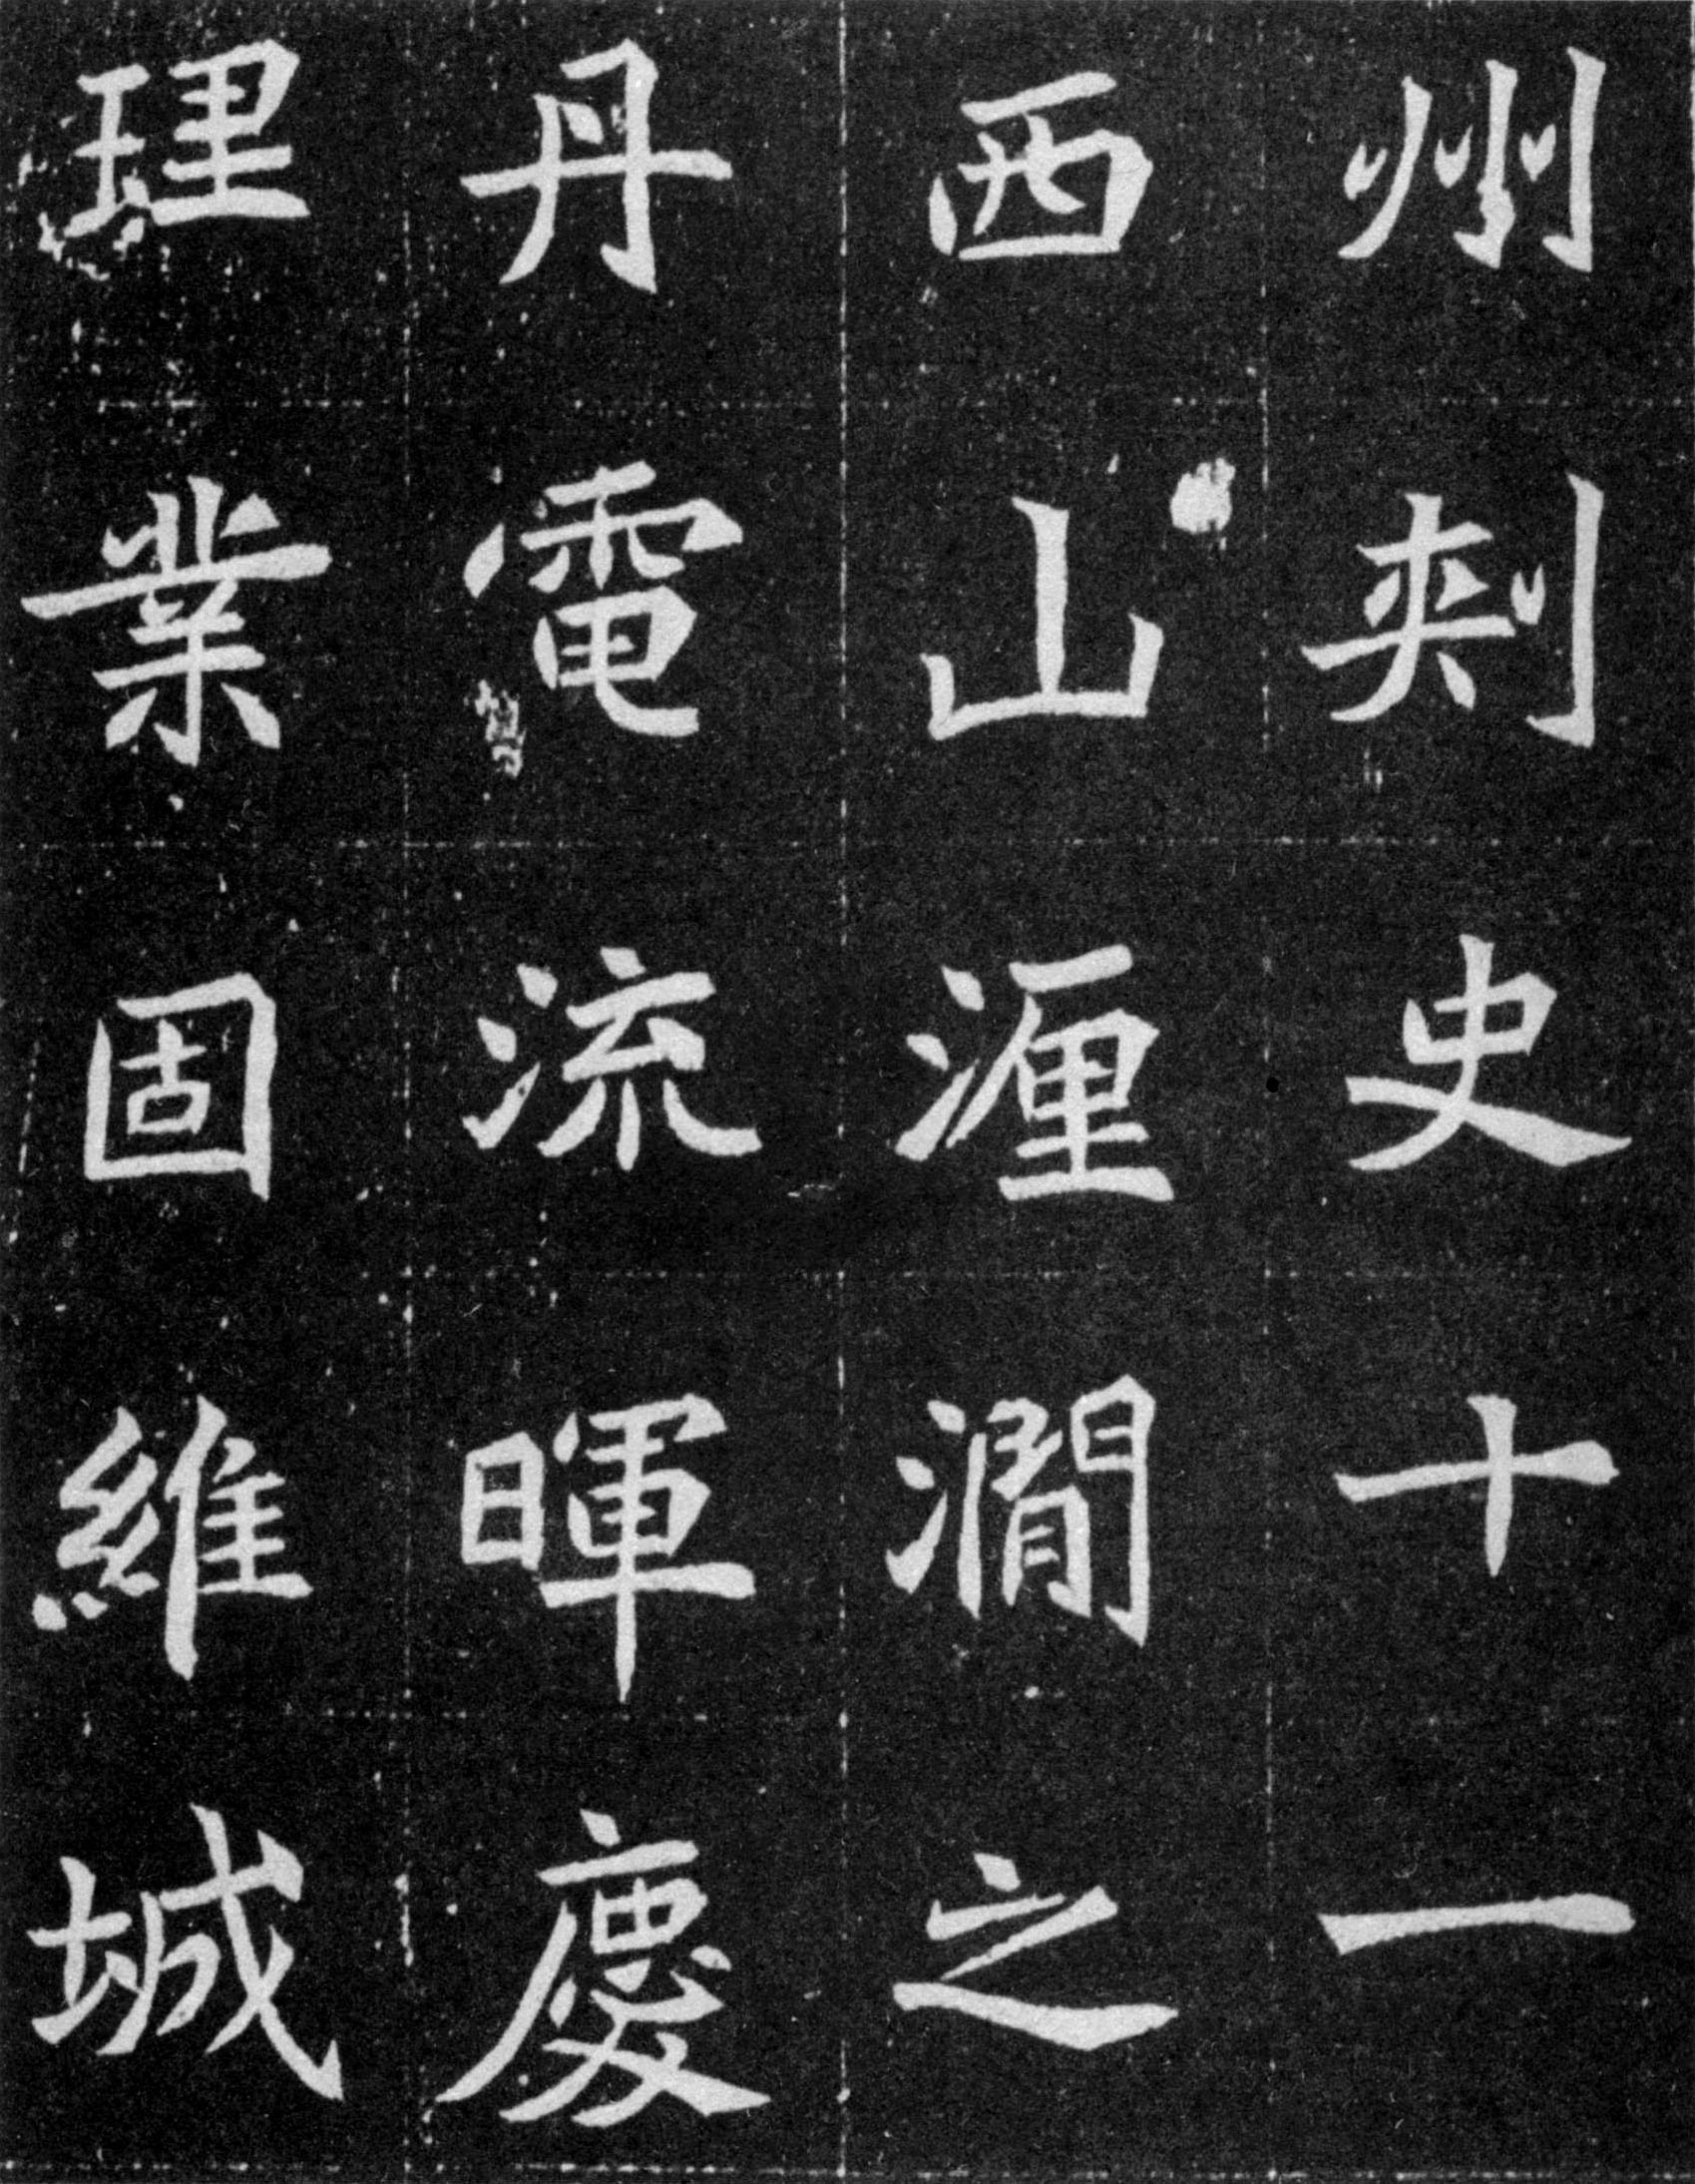 州刾史十一
西山瀍澗之
丹電流暉慶
理業固維城